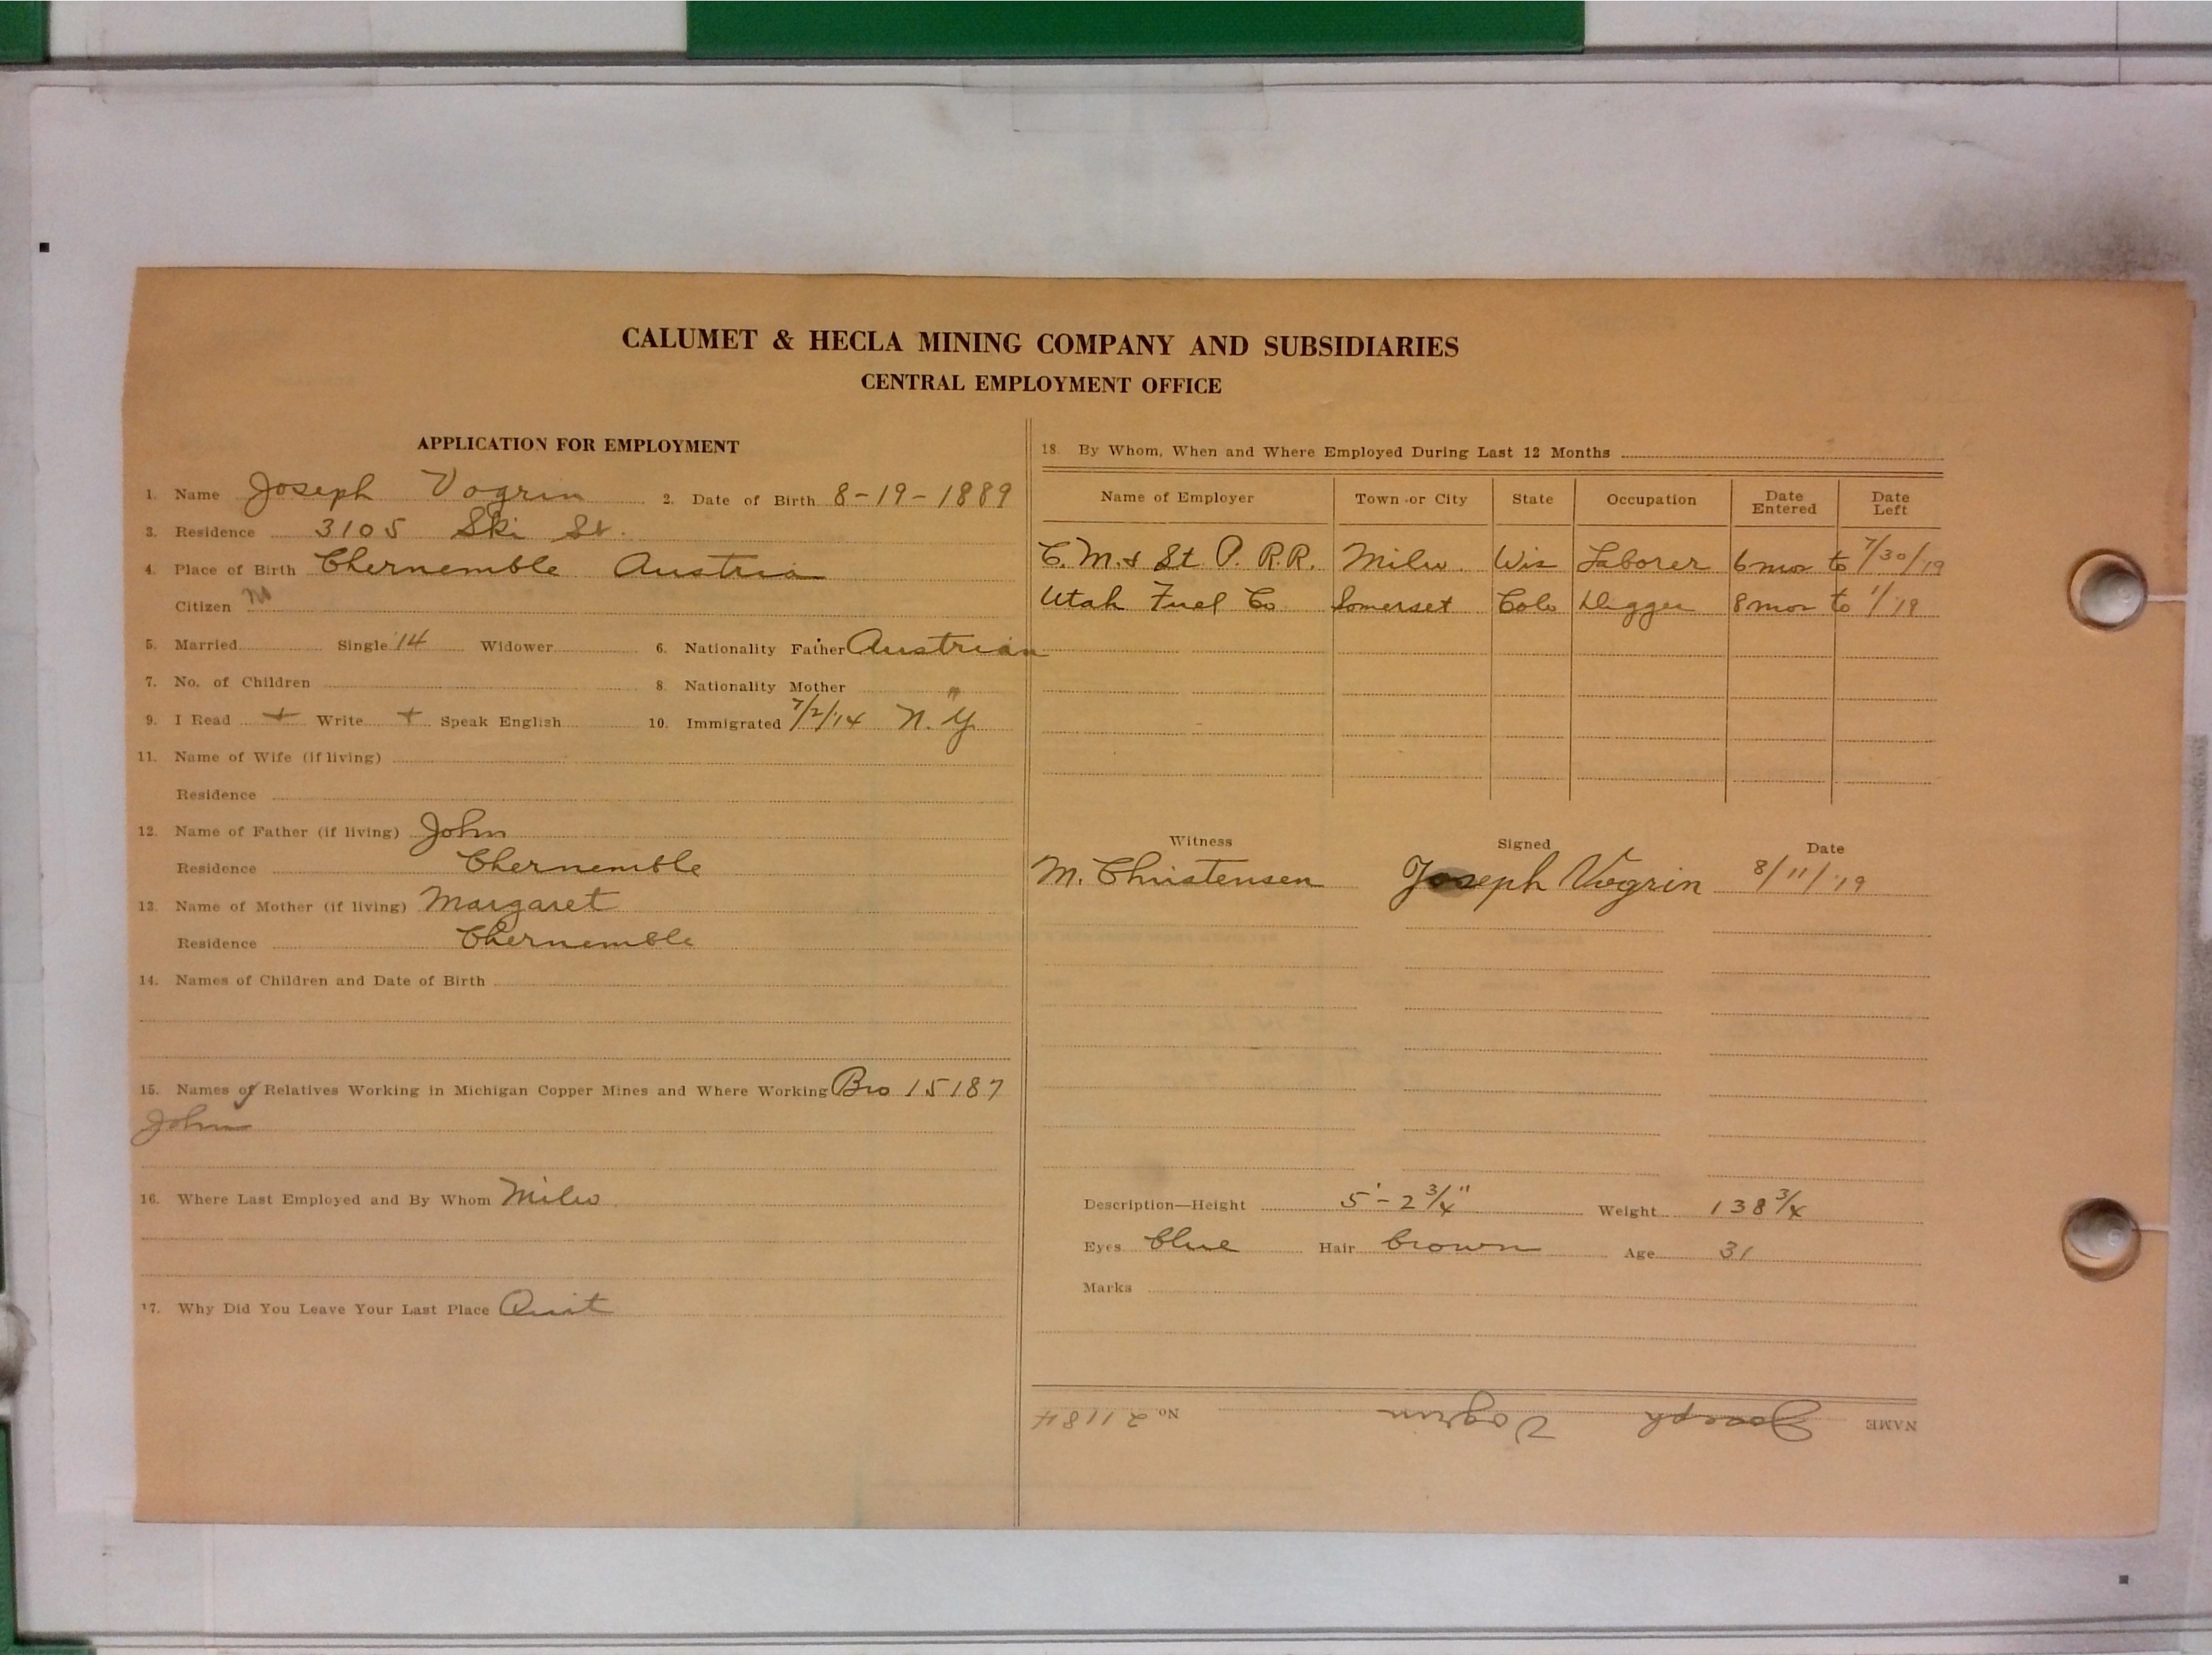 CALUMET & HECLA MINING COMPANY AND SUBSIDIARIES
CENTRAL EMPLOYMENT OFFICE
APPLICATION FOR EMPLOYMENT
1. Name Joseph Vogrin 2. Date of Birth 8-19-1889
3. Residence 3105 Ski St.
4. Place of Birth Chernemble Austria
Citizen
5. Married Single '14 Widower 6. Nationality Father Austrian
7. No. of Children 8. Nationality Mother "
9. I Read + Write + Speak English 10. Immigrated 7/2/14 N.Y.
11. Name of Wife (if living)
Residence
12. Name of Father (if living) John
Residence Chernemble
13. Name of Mother (if living) Margaret
Residence Chernemble
14. Names of Children and Date of Birth
15. Names of Relatives Working in Michigan Copper Mines and Where Working Bro 15187
John
16. Where Last Employed and By Whom Milw.
17. Why Did You Leave Your Last Place Quit
18. By Whom, When and Where Employed During Last 12 Months
Name of Employer Town or City State Occupation Date Entered Date Left
C. M. & St. P. R.R. Milw. Wis Laborer 6 mos to 7/30/19
Utah Fuel Co Somerset Colo Digger 8 mos to 1/19
Witness Signed Date
M. Christensen Joseph Vogrin 8/11/'19
Description—Height 5'-2 3/4" Weight 138 3/4
Eyes blue Hair brown Age 31
Marks
NAME Joseph Vogrin No. 21184